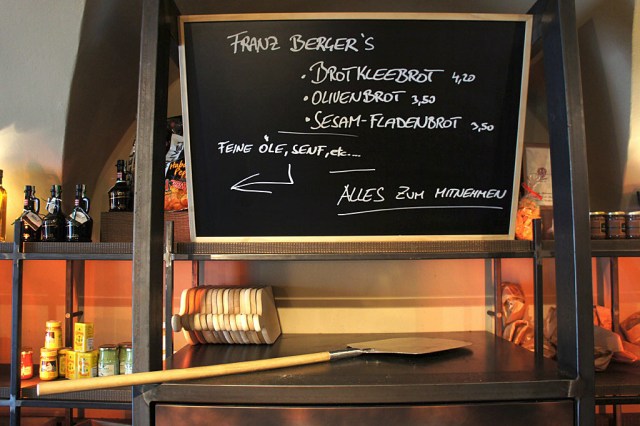 FRANZ BERGER'S
• BROTKLEEBROT 4,20
• OLIVENBROT 3,50
• SESAM-FLADENBROT 3,50
FEINE ÖLE, SENF, etc....
ALLES ZUM MITNEHMEN